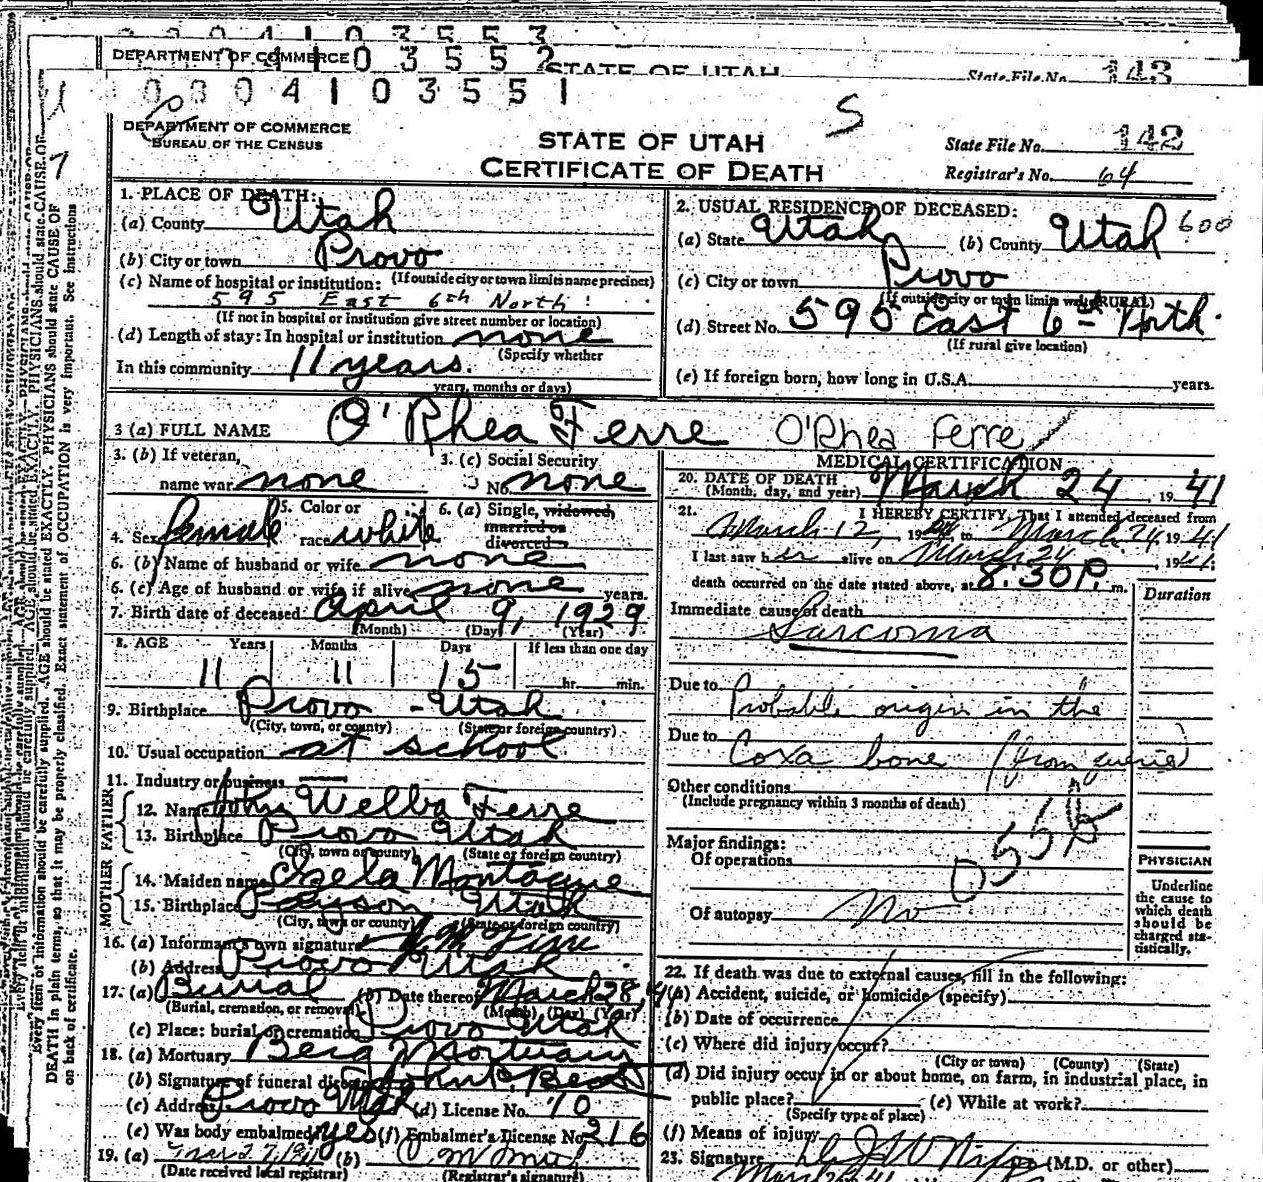 DEPARTMENT OF COMMERCE 0 3 5 5 2
STATE OF UTAH
State File No. 143
0 3 0 4 1 0 3 5 5 1
S
DEPARTMENT OF COMMERCE
BUREAU OF THE CENSUS
STATE OF UTAH
CERTIFICATE OF DEATH
State File No. 142
Registrar's No. 64
1. PLACE OF DEATH:
(a) County Utah
(b) City or town Provo
(If outside city or town limits name precinct)
(c) Name of hospital or institution:
595 East 6th North
(If not in hospital or institution give street number or location)
(d) Length of stay: In hospital or institution none
(Specify whether
In this community 11 years.
years, months or days)
2. USUAL RESIDENCE OF DECEASED:
(a) State Utah (b) County Utah 600
(c) City or town Provo
(If outside city or town limits write RURAL)
(d) Street No. 595 East 6th North.
(If rural give location)
(e) If foreign born, how long in U.S.A. years.
3 (a) FULL NAME O'Rhea Ferre O'Rhea Ferre
3. (b) If veteran,
name war none
3. (c) Social Security
No. none
4. Sex female 5. Color or race white 6. (a) Single, widowed, married or divorced
6. (b) Name of husband or wife none
6. (c) Age of husband or wife if alive none years.
7. Birth date of deceased April 9, 1929
(Month) (Day) (Year)
8. AGE Years Months Days If less than one day
11 11 15 hr. min.
9. Birthplace Provo - Utah
(City, town, or county) (State or foreign country)
10. Usual occupation at school
11. Industry or business
FATHER
12. Name John Welba Ferre
13. Birthplace Provo Utah
(City, town or county) (State or foreign country)
MOTHER
14. Maiden name Montague
15. Birthplace Payson Utah
(City, town or county) (State or foreign country)
16. (a) Informant's own signature Ferre
(b) Address Provo Utah
17. (a) Burial (b) Date thereof March 28, 41
(Burial, cremation, or removal) (Month) (Day) (Year)
(c) Place: burial or cremation Provo Utah
18. (a) Mortuary Berg Mortuary
(b) Signature of funeral director
(c) Address Provo Utah (d) License No. 70
(e) Was body embalmed yes (f) Embalmer's License No. 216
19. (a) (b)
(Date received local registrar) (Registrar's signature)
MEDICAL CERTIFICATION
20. DATE OF DEATH
(Month, day, and year) March 24, 1941
21. I HEREBY CERTIFY, That I attended deceased from
March 12, 1941, to March 24, 1941
I last saw her alive on March 24, 1941;
death occurred on the date stated above, at 8:30 P. m.
Duration
Immediate cause of death
Sarcoma
Due to Probable origin in the
Due to Coxa bone (from
Other conditions
(Include pregnancy within 3 months of death)
Major findings:
Of operations
055
Of autopsy no
PHYSICIAN
Underline
the cause to
which death
should be
charged sta-
tistically.
22. If death was due to external causes, fill in the following:
(a) Accident, suicide, or homicide (specify)
(b) Date of occurrence
(c) Where did injury occur?
(City or town) (County) (State)
(d) Did injury occur in or about home, on farm, in industrial place, in
public place? (e) While at work?
(Specify type of place)
(f) Means of injury
23. Signature (M.D. or other)
Every item of information should be carefully supplied. AGE should be stated EXACTLY. PHYSICIANS should state CAUSE OF
DEATH in plain terms, so that it may be properly classified. Exact statement of OCCUPATION is very important. See instructions
on back of certificate.